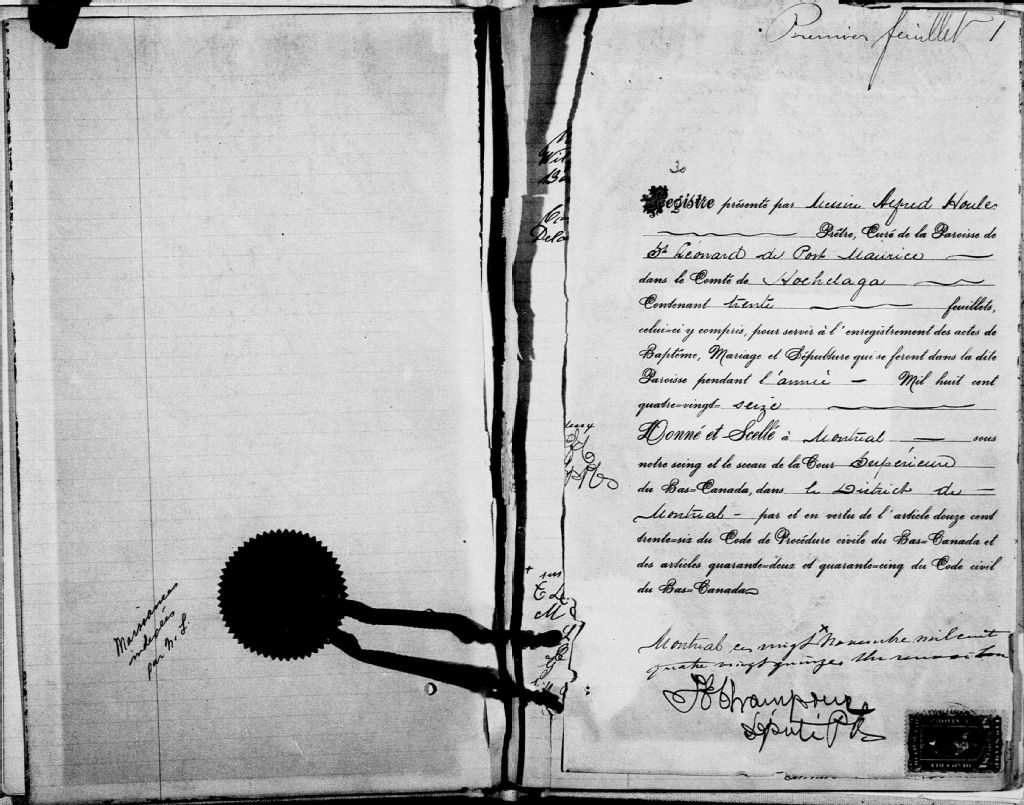 Premier feuillet 1
30
Registre présenté par Messire Alfred Houle
Prêtre, Curé de la Paroisse de
St Léonard de Port Maurice
dans le Comté de Hochelaga
Contenant trente feuillets,
celui-ci y compris, pour servir à l'enregistrement des actes de
Baptême, Mariage et Sépulture qui se feront dans la dite
Paroisse pendant l'année Mil huit cent
quatre-vingt- seize
Donné et Scellé à Montréal sous
notre seing et le sceau de la Cour Supérieure
du Bas-Canada, dans le District de
Montréal - par et en vertu de l'article douze cent
trente-six du Code de Procédure civile du Bas-Canada et
des articles quarante-deux et quarante-cinq du Code civil
du Bas-Canada
Montréal ce vingt Novembre mil huit
quatre vingt quinze
Député P
Naissances
indexées
par